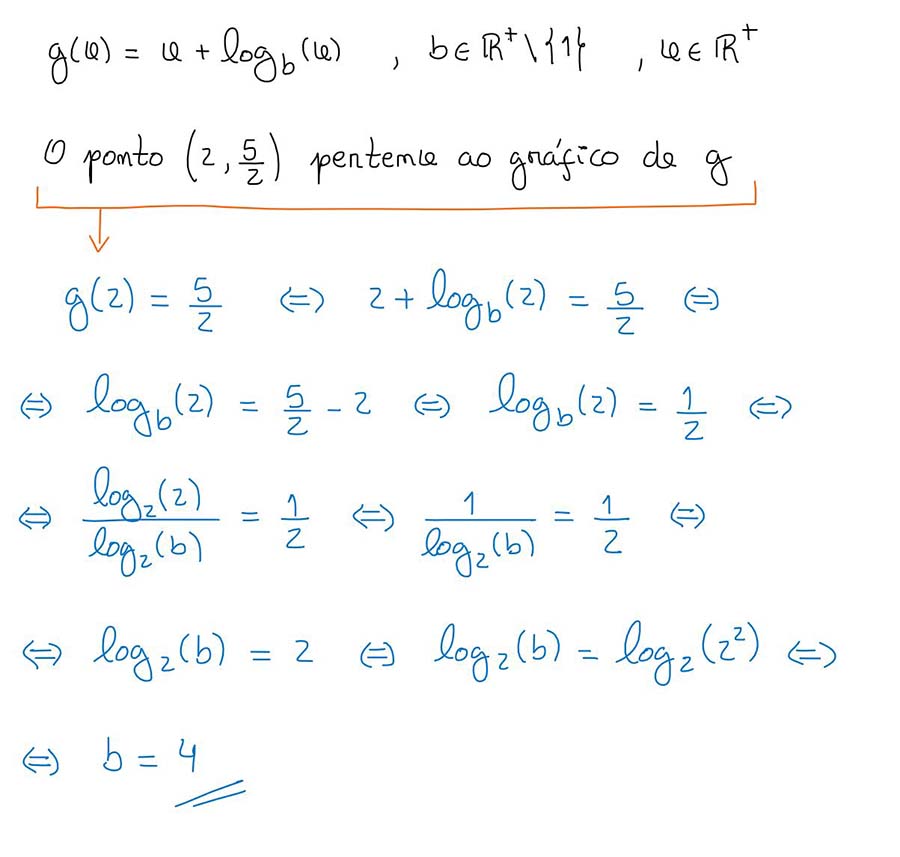 g(x) = x + log_b(x) , b ∈ ℝ⁺ \ {1} , x ∈ ℝ⁺
O ponto (2, 5/2) pertence ao gráfico de g
g(2) = 5/2 ⇔ 2 + log_b(2) = 5/2 ⇔
⇔ log_b(2) = 5/2 − 2 ⇔ log_b(2) = 1/2 ⇔
⇔ log₂(2)/log₂(b) = 1/2 ⇔ 1/log₂(b) = 1/2 ⇔
⇔ log₂(b) = 2 ⇔ log₂(b) = log₂(2²) ⇔
⇔ b = 4